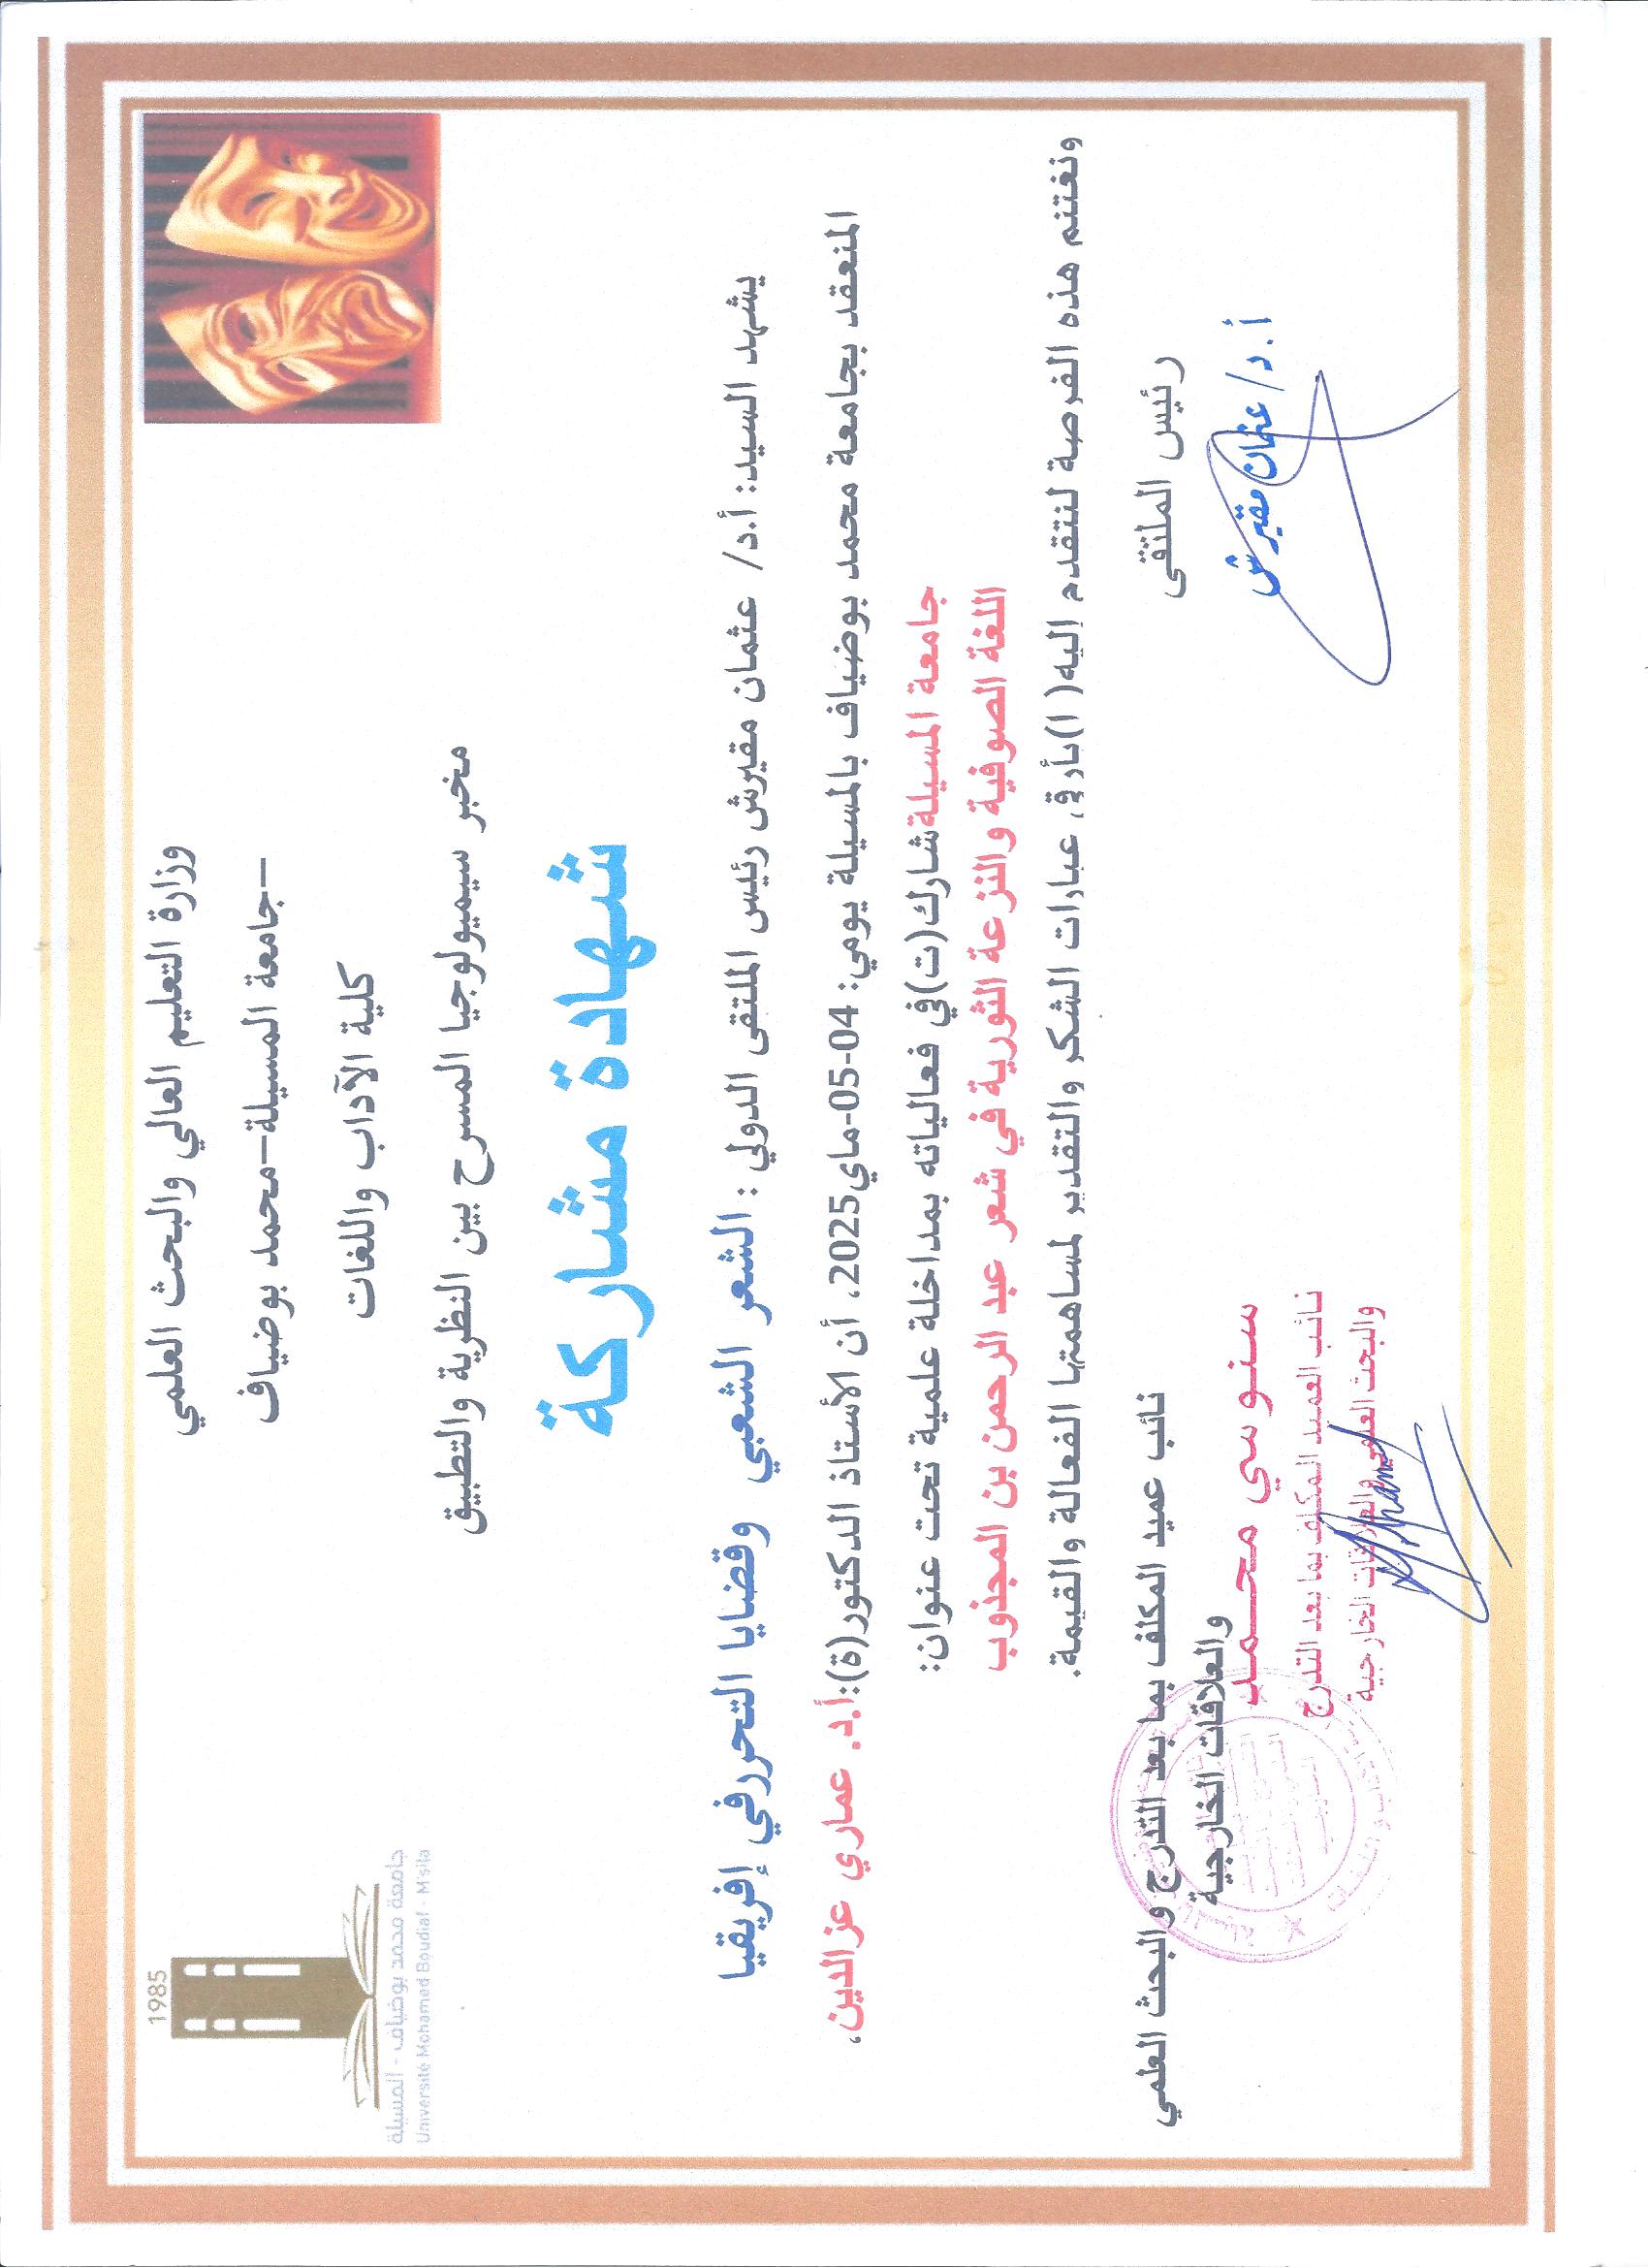 وزارة التعليم العالي والبحث العلمي
–جامعة المسيلة–محمد بوضياف
كلية الآداب واللغات
مخبر سيميولوجيا المسرح بين النظرية والتطبيق
1985
جامعة محمد بوضياف - المسيلة
Université Mohamed Boudiaf - M'sila
شهادة مشاركة
يشهد السيد: أ.د/ عثمان مقيرش رئيس الملتقى الدولي : الشعر الشعبي وقضايا التحرر في إفريقيا
المنعقد بجامعة محمد بوضياف بالمسيلة يومي: 04-05-ماي2025، أن الأستاذ الدكتور(ة):أ.د. عماري عزالدين،
جامعة المسيلة شارك(ت)في فعالياته بمداخلة علمية تحت عنوان:
اللغة الصوفية والنزعة الثورية في شعر عبد الرحمن بن المجذوب
ونغتنم هذه الفرصة لنتقدم إليه( ا)بأرقى عبارات الشكر والتقدير لمساهمتها الفعالة والقيمة.
رئيس الملتقى
أ.د/ عثمان مقيرش
نائب عميد المكلف بما بعد التدرج والبحث العلمي
والعلاقات الخارجية
سنوسي محمد
نائب العميد المكلف بما بعد التدرج
والبحث العلمي والعلاقات الخارجية